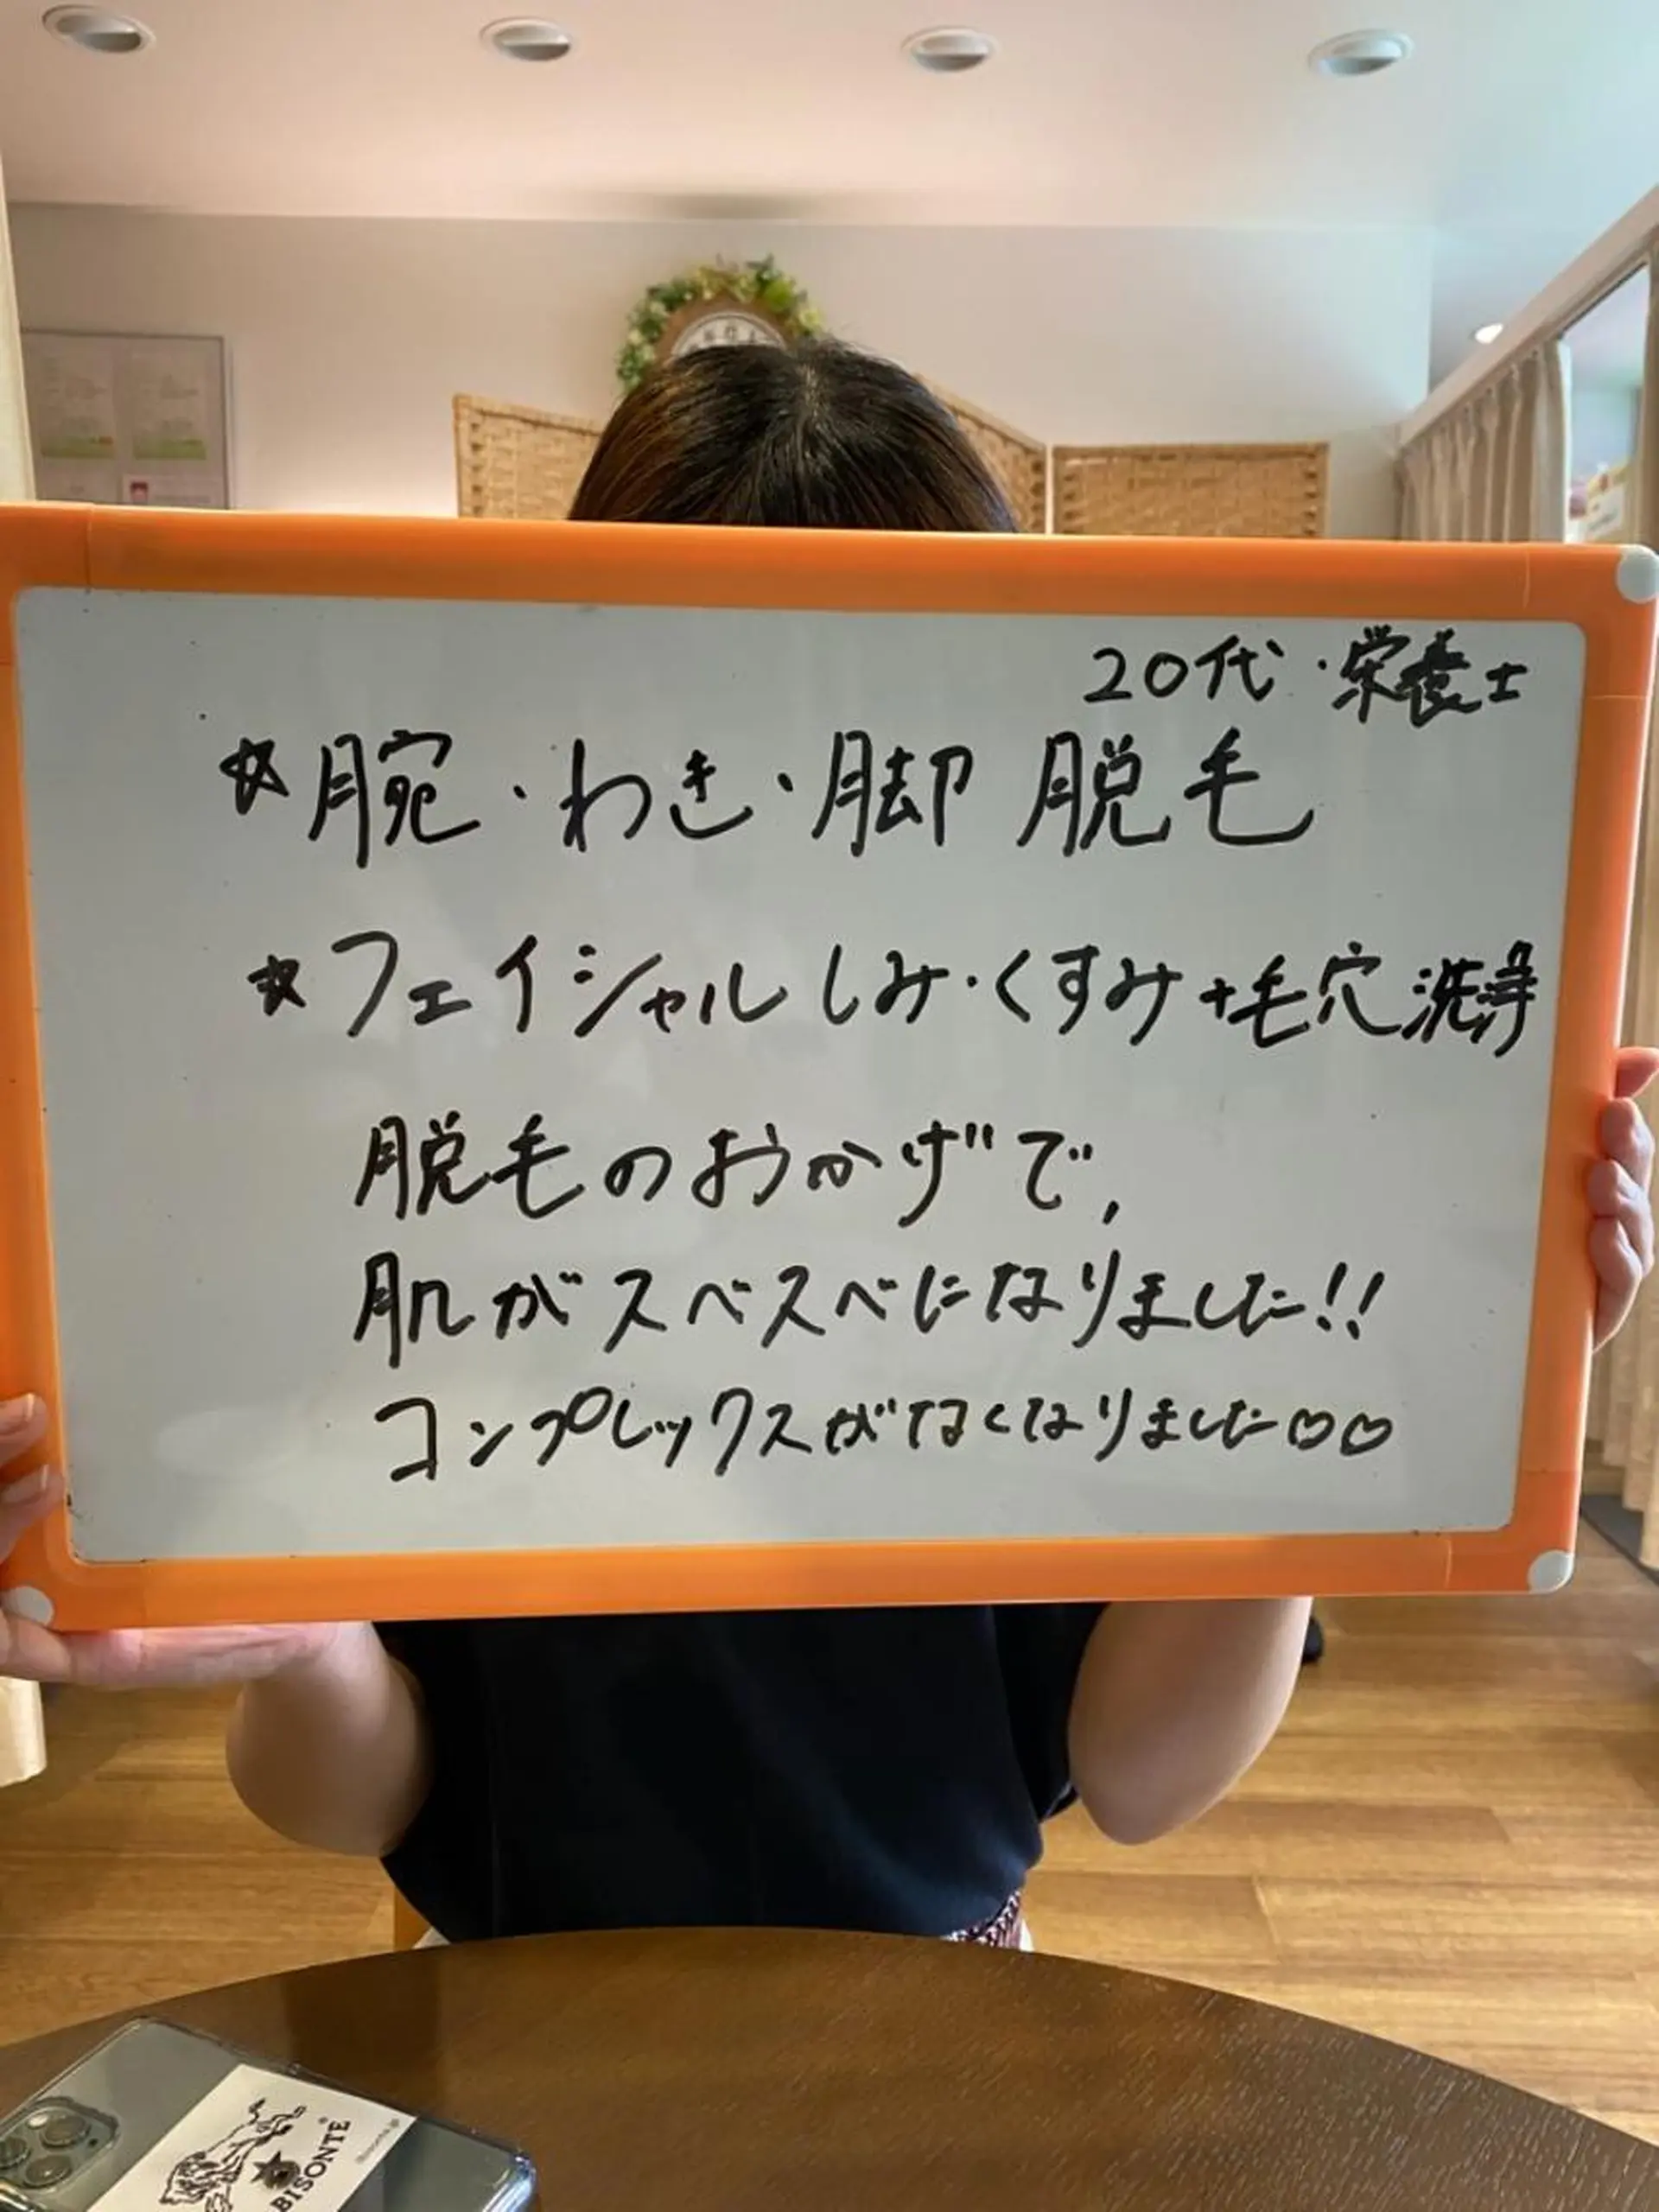 20代・栄養士
☆腕・わき・脚 脱毛
☆フェイシャル しみ・くすみ+毛穴洗浄
脱毛のおかげで,
肌がスベスベになりました!!
コンプレックスがなくなりました♡♡
BISONTE